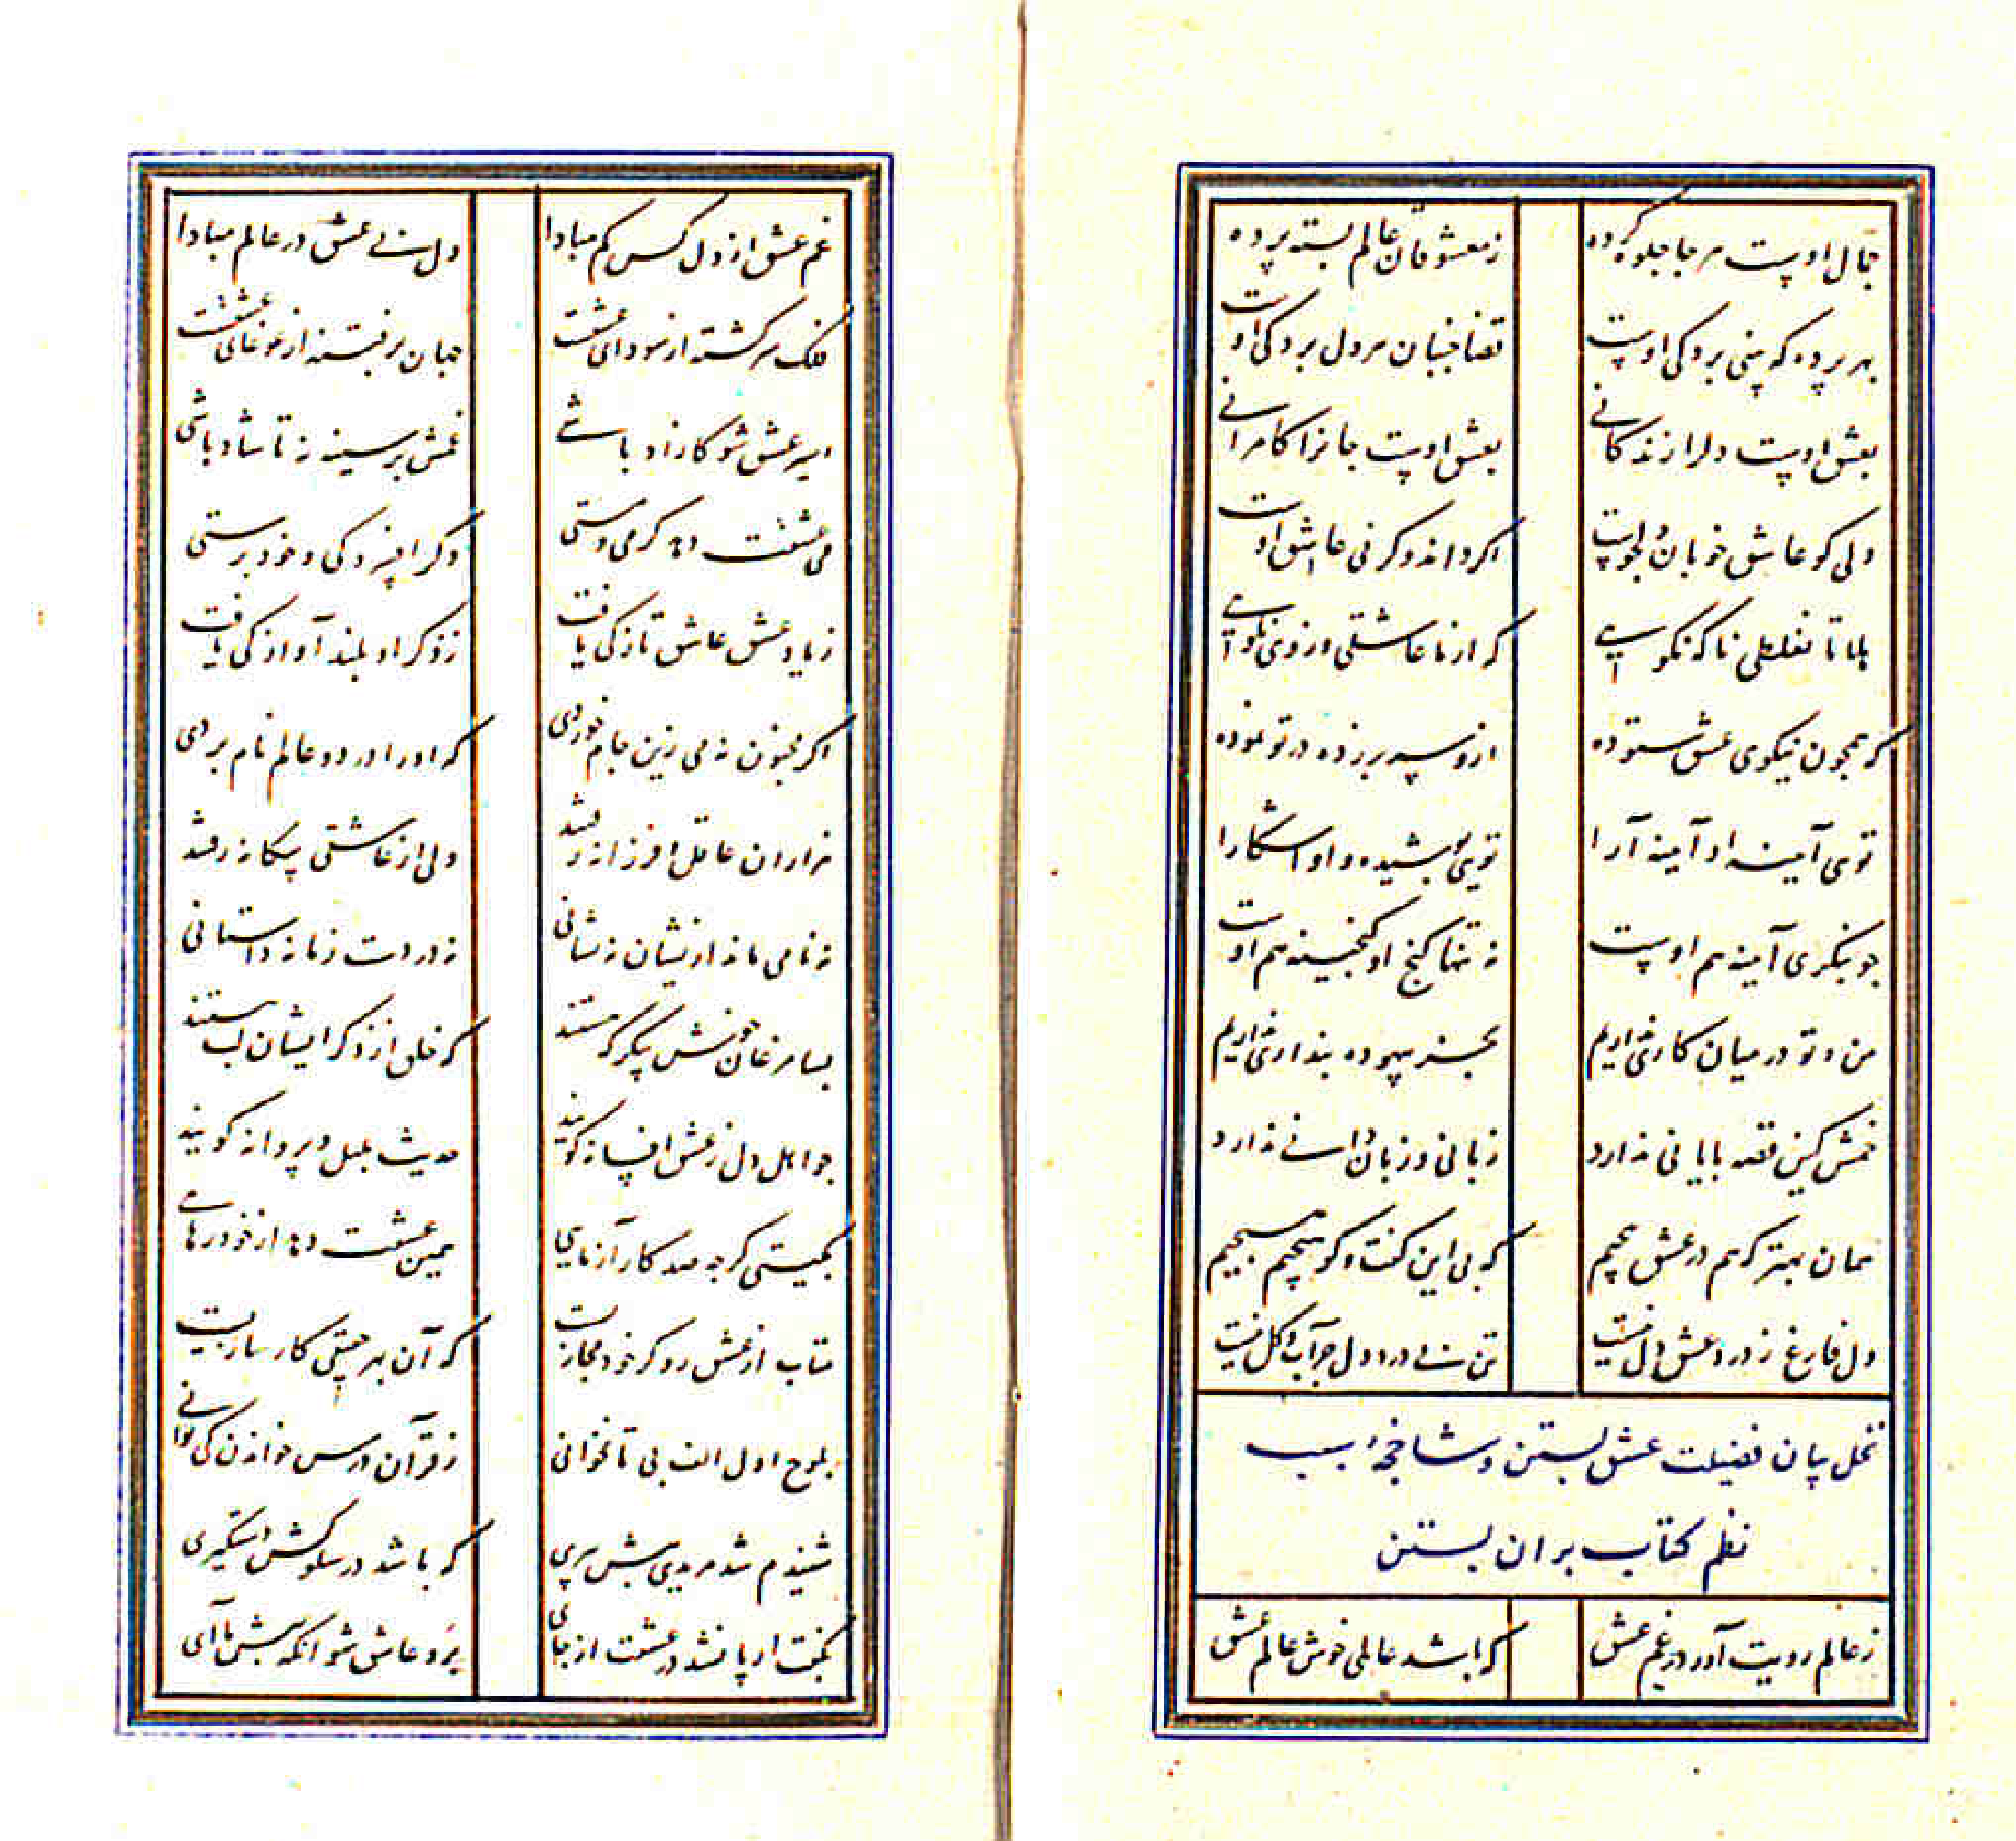 جمال اوست هر جا جلوه کرده ز معشوقان عالم بسته پرده
بهر پرده که بینی پردکی اوست قضا جنبان هر دل بردکی اوست
بعشق اوست دلرا زندکانی بعشق اوست جانرا کامرانی
دلی کو عاشق خوبان دلجوست اکر داند وکر نی عاشق اوست
هلا تا نغلطی ناکه نکویی که از ما عاشقی وز وی نکویی
که همچون نیکویی عشق ستوده ازو سر بر زده در تو نموده
تویی آیینه او آیینه آرا تویی پوشیده و او آشکارا
چو بنکری آیینه هم اوست نه تنها کنج او کنجینه هم اوست
من و تو در میان کاری نداریم بجز بیهوده پنداری نداریم
خمش کین قصه پایانی ندارد زبانی و زبان دانی ندارد
همان بهتر که هم در عشق پیچیم که بی این کفت و کو هیچیم هیچیم
دل فارغ ز درد عشق دل نیست تن بی درد دل جز آب و کل نیست
نخل بیان فضیلت عشق بستن و شاخچهٔ سبب
نظم کتاب بران بستن
ز عالم رویت آور در غم عشق که باشد عالمی خوش عالم عشق
غم عشق از دل کس کم مبادا دل بی عشق در عالم مبادا
فلک سرکشته از سودای عشقست جهان پر فتنه از غوغای عشقست
اسیر عشق شو کازاد باشی غمش بر سینه نه تا شاد باشی
می عشقت دهد کرمی و مستی دکر افسردکی و خود پرستی
ز یاد عشق عاشق تازکی یافت ز ذکر او بلند آوازکی یافت
اکر مجنون نه می زین جام خوردی که او را در دو عالم نام بردی
هزاران عاقل و فرزانه رفتند ولی از عاشقی بیکانه رفتند
نه نامی ماند ازیشان نه نشانی نه در دست زمانه داستانی
بسا مرغان خوش پیکر که هستند که خلق از ذکر ایشان لب ببستند
چو اهل دل ز عشق افسانه کویند حدیث بلبل و پروانه کویند
بکیتی کرچه صد کار آزمایی همین عشقت دهد از خود رهایی
متاب از عشق رو کر خود مجازیست که آن بهر حقیقی کارسازیست
بلوح اول الف بی تا نخوانی ز قرآن درس خواندن کی توانی
شنیدم شد مریدی پیش پیری که باشد در سلوکش دستکیری
بکفت ار پا نشد در عشقت از جای برو عاشق شو آنکه پیش ما آی